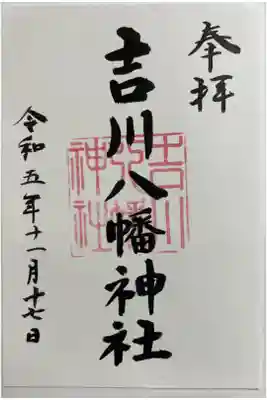 奉拝
吉川八幡神社
吉川八幡神社
令和五年十一月十七日